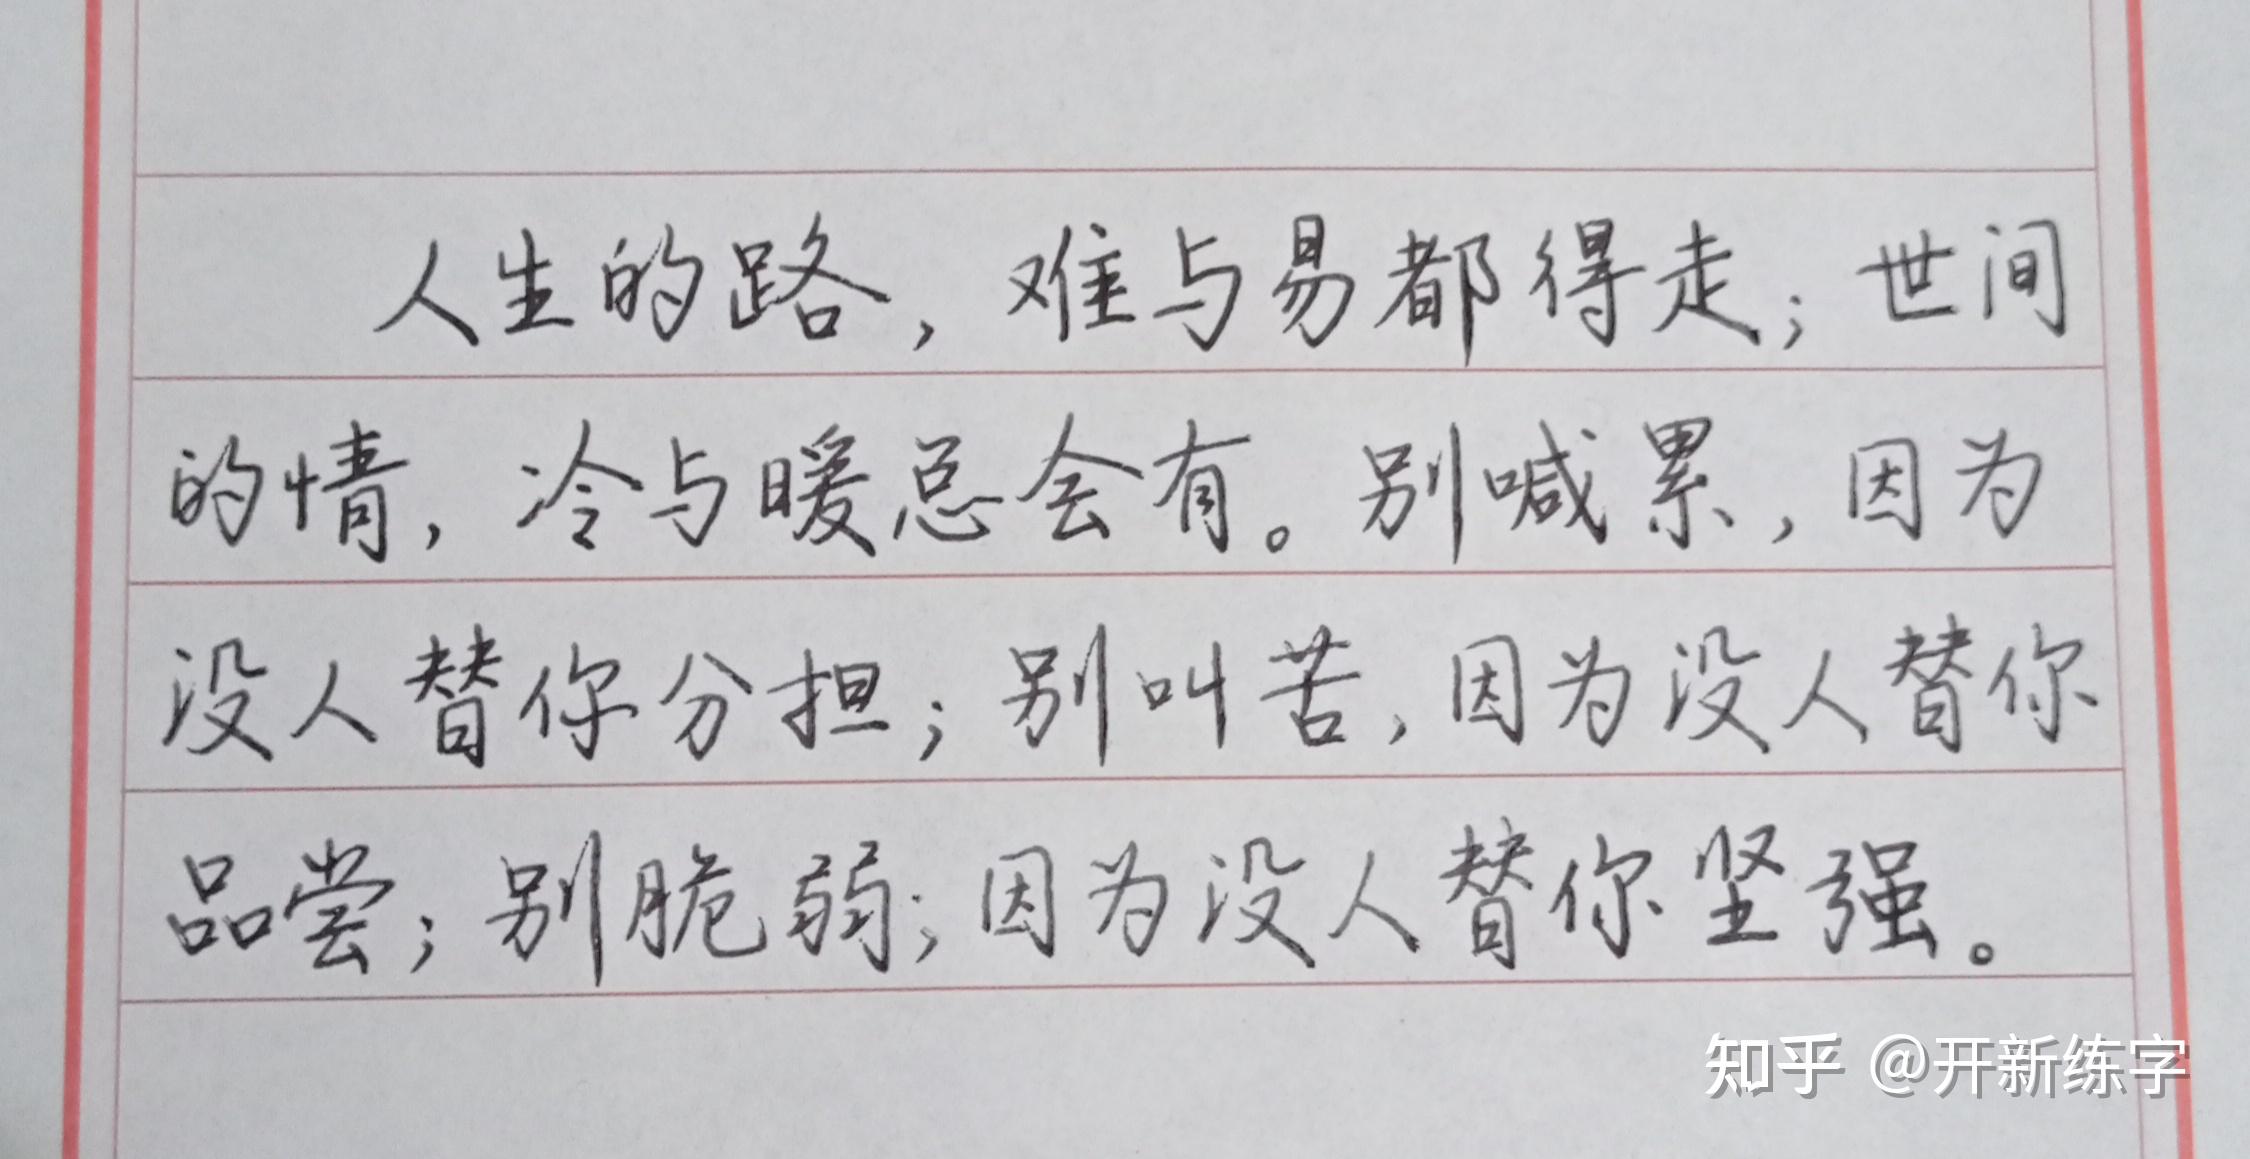 人生的路，难与易都得走；世间
的情，冷与暖总会有。别喊累，因为
没人替你分担；别叫苦，因为没人替你
品尝；别脆弱；因为没人替你坚强。
知乎 @开新练字